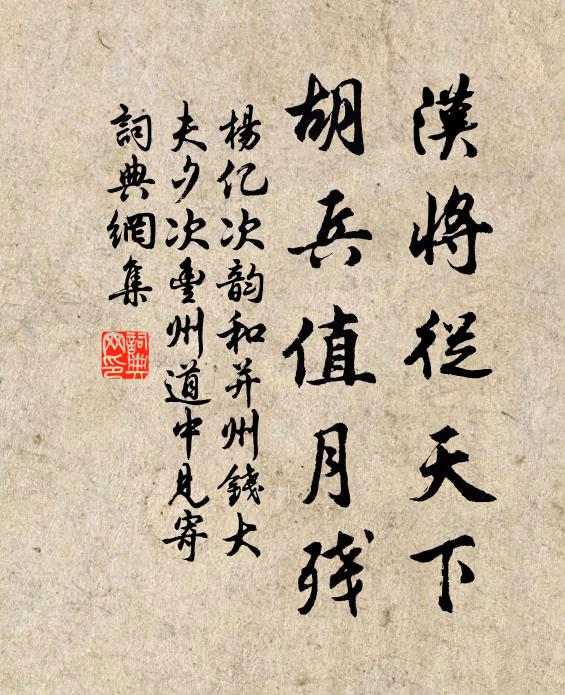 漢將從天下
胡兵值月残
楊亿次韵和并州錢大
夫夕次豊州道中見寄
詞典網集
詞典網印